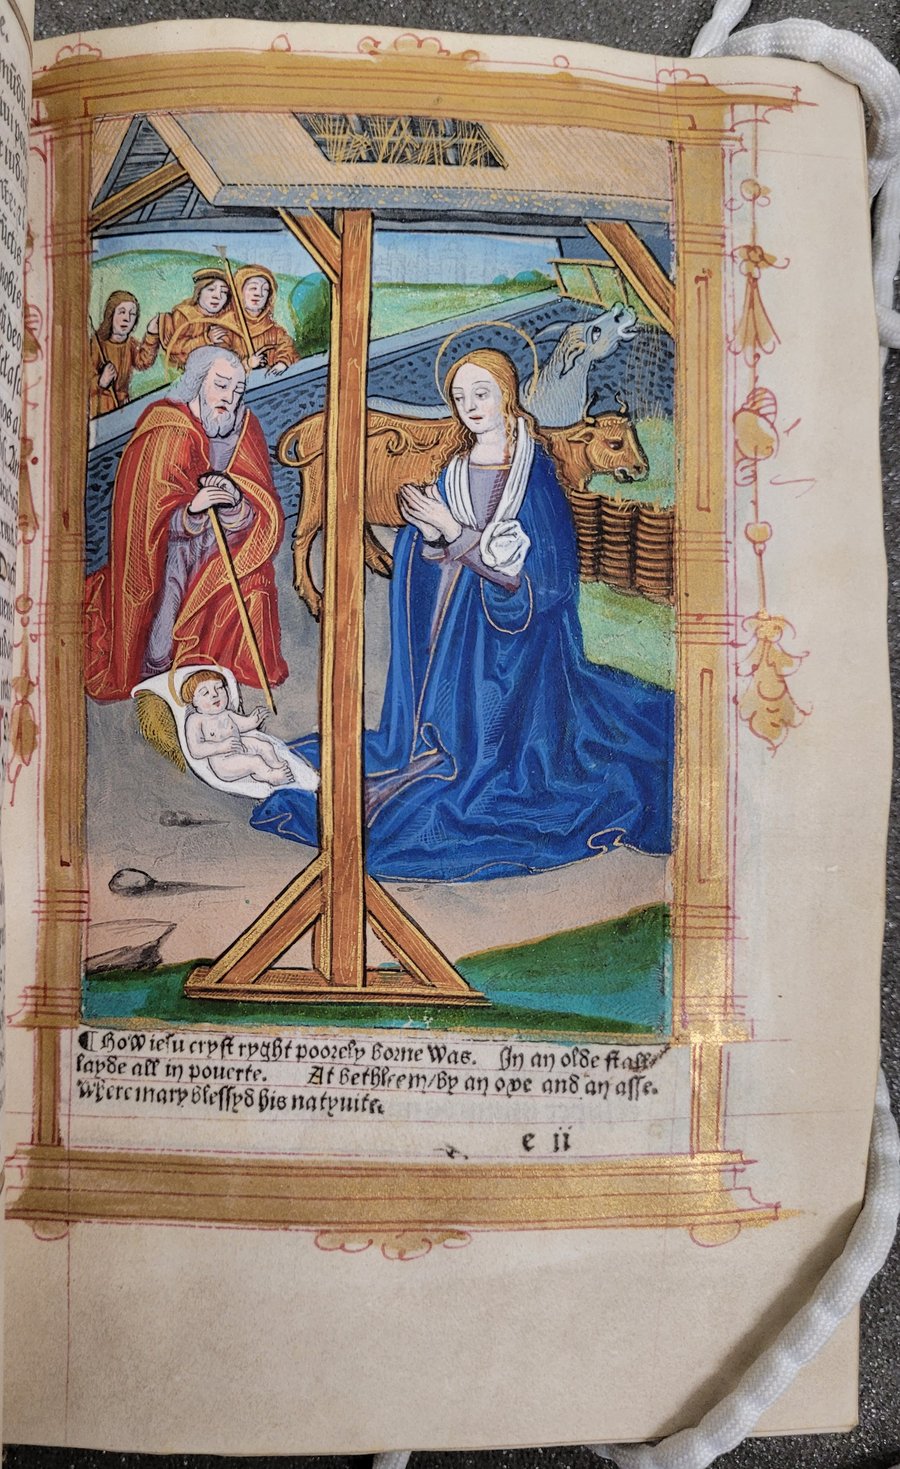 ¶ How iesu cryst ryght poorely borne was. In an olde stall
layde all in pouerte. At bethleem/by an oxe and an asse.
Where mary blessyd his natyuite.
e ii